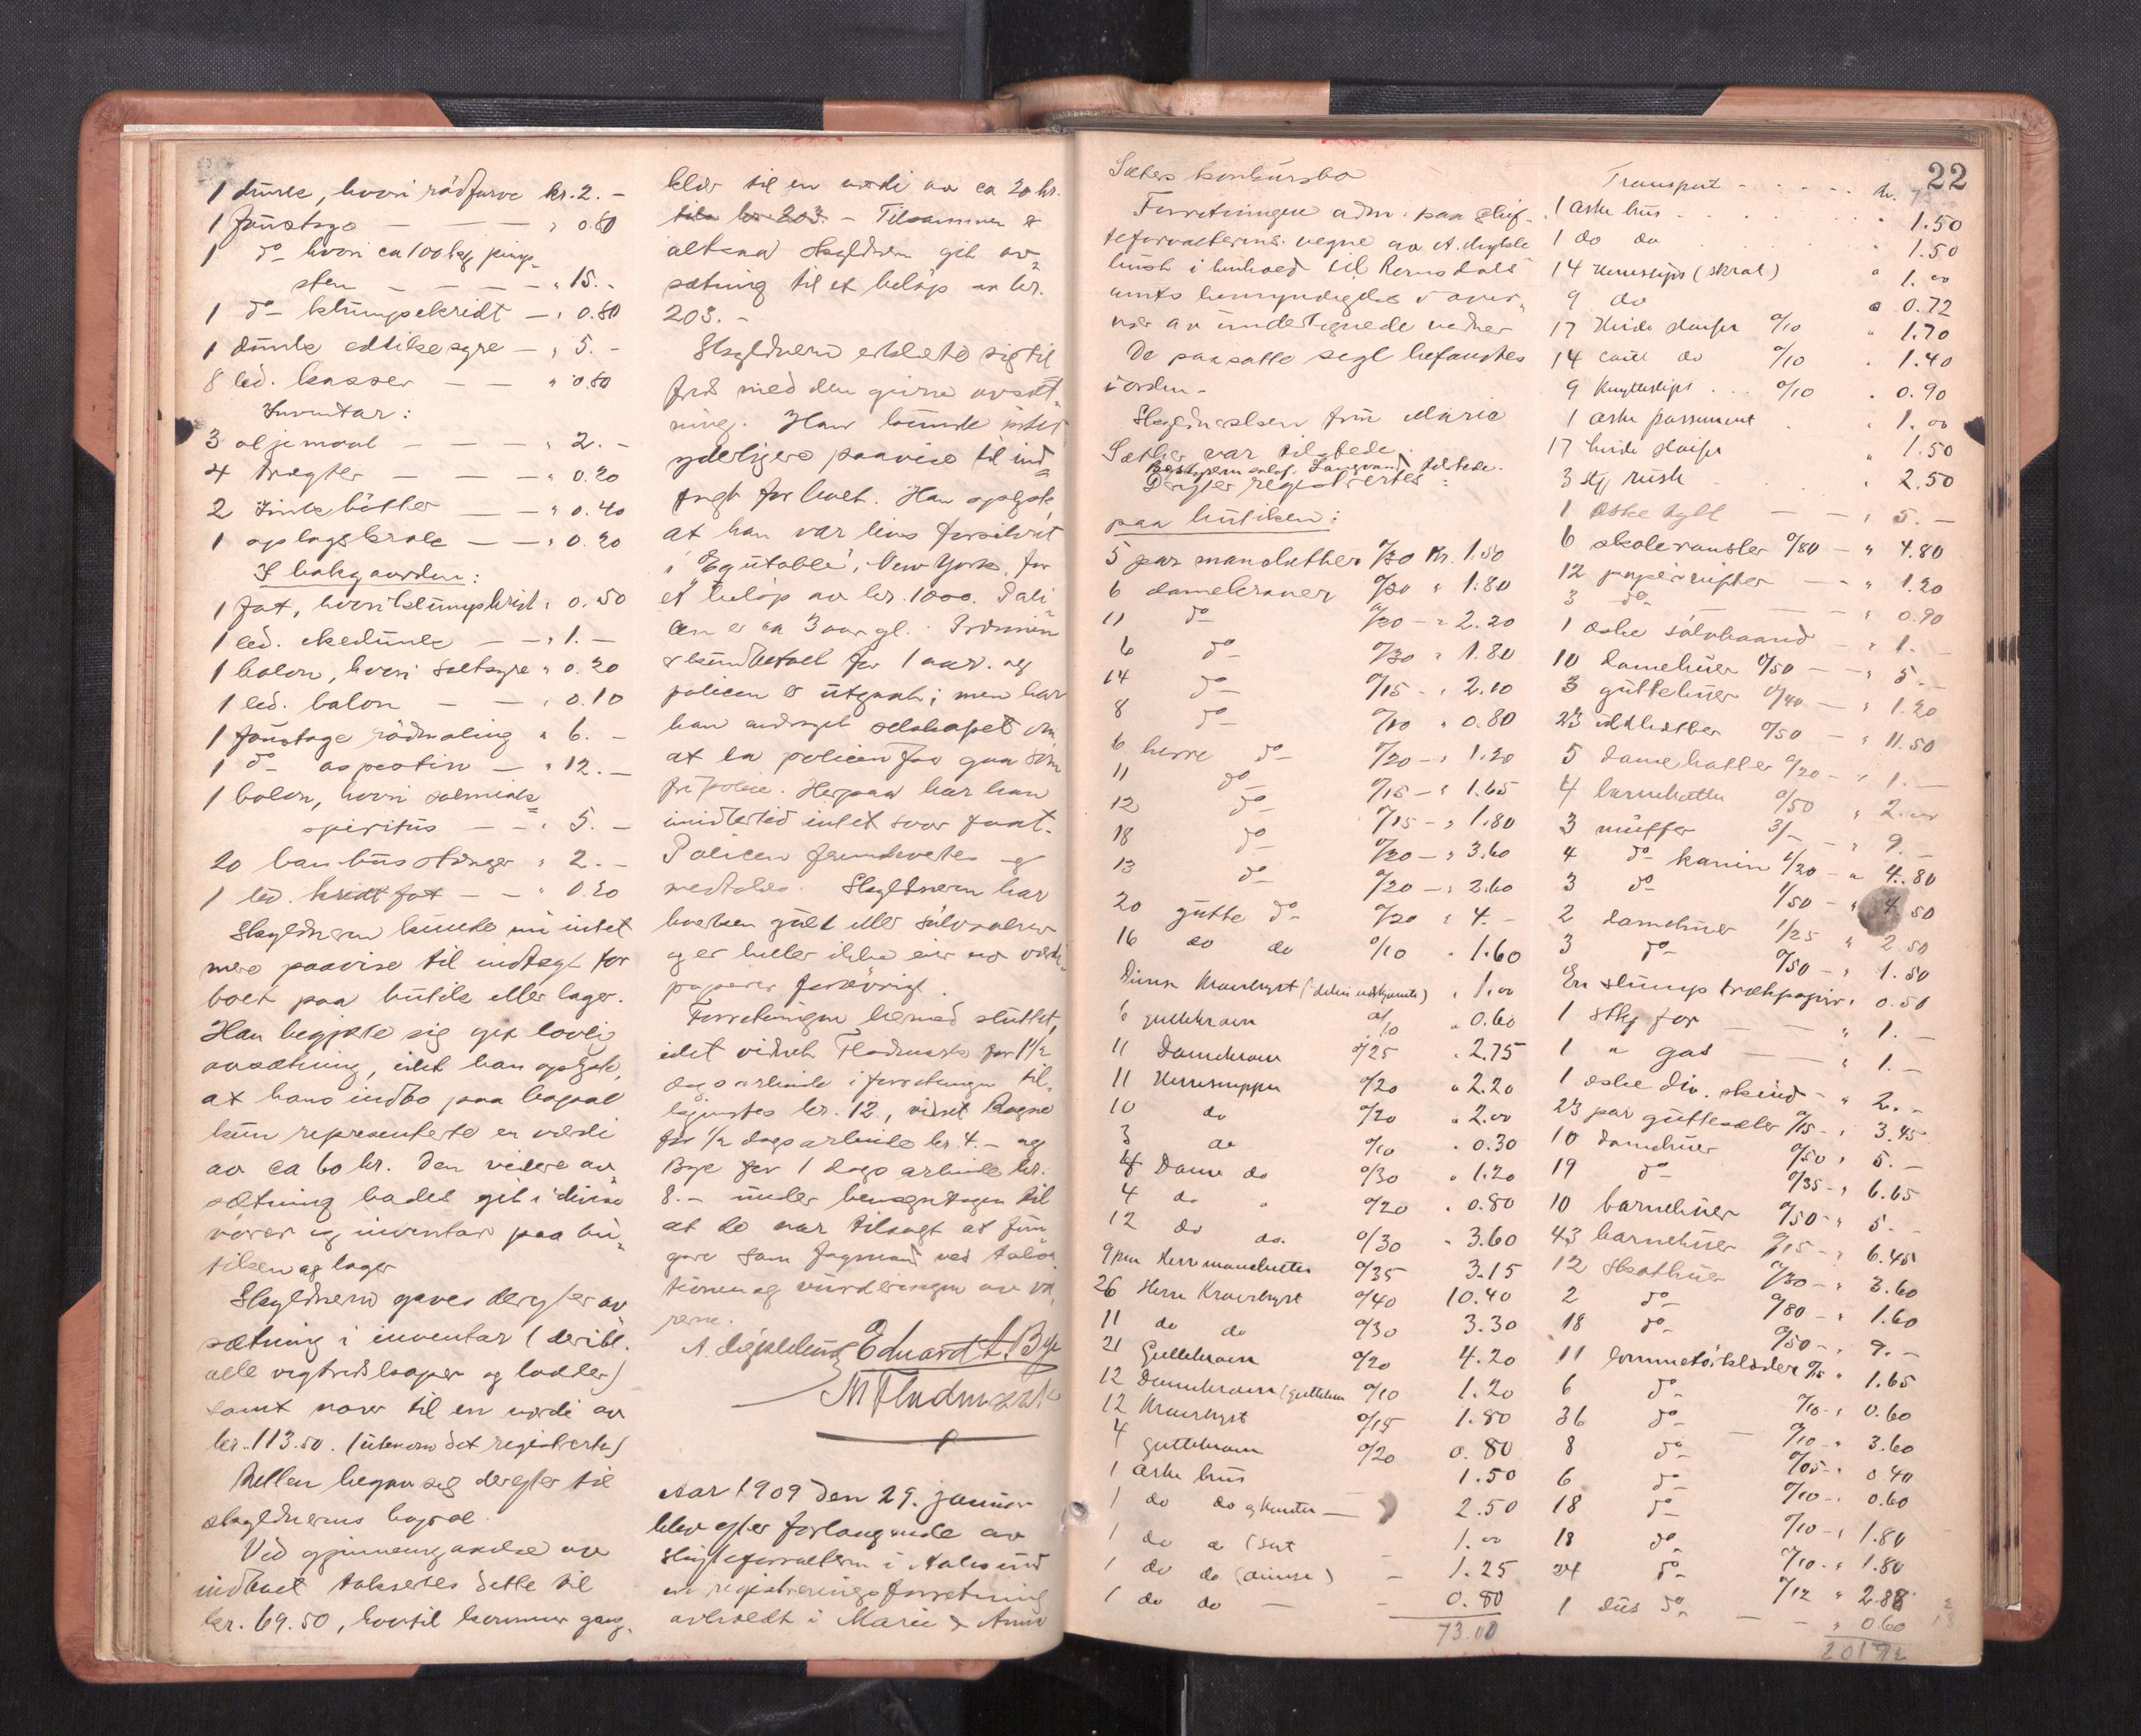 1 dunk, hvori rødfarve kr. 2.-
1 faustage — — — " 0.80
1 do hvori ca 100 kg pimp-
sten — — — — " 15.-
1 do klumpekridt — " 0.80
1 dunk edikesyre — " 5.-
8 led. kasser — — " 0.80
Inventar:
3 oljemaal — — — " 2.-
4 tragter — — — " 0.20
2 zinkbøtter — — " 0.40
1 oplagskrak — — " 0.20
I bakgaarden:
1 fat, hvori klumpkridt " 0.50
1 led. ekedunk — — " 1.-
1 balon, hvori saltsyre " 0.20
1 led. balon — — " 0.10
1 faustage rødmaling " 6.-
1 do aspestin — " 12.-
1 balon, hvori salmiak
spiritus — — " 5.-
20 bambusstænger " 2.-
1 led. kridtfat — — " 0.20
Skyldneren kunde nu intet
mere paavise til indtægt for
boet paa butik eller lager.
Han begjærte sig git lovlig
avsætning, idet han opgav,
at hans indbo paa bopæl
kun representerte en værdi
av ca 60 kr. Den videre av
sætning bades git i diverse
varer og inventar paa bu-
tiken og lager
Skyldneren gaves derefter av
sætning i inventar (deribl.
alle vegtredskaper og lodder)
samt varer til en værdi av
kr. 113.50. (utenom det registrerte)
Retten begav sig derefter til
skyldnerens bopæl.
Ved gjennemgaaelse av
indboet taksertes dette til
kr. 69.50, hvortil kommer gang-
klær til en værdi av ca 20 kr.
Tilsammen er
altsaa skyldneren git av
sætning til et beløp av kr.
203.-
Skyldneren erklærte sig til
freds med den givne avsæt-
ning. Han kunde intet
yderligere paavise til ind
tægt for boet. Han opgav,
at han var livsforsikret
i "Equitable", New York, for
et beløp av kr. 1000. Poli
cen er ca 3 aar gl. Præmien
er kun betalt for 1 aar og
policen er utgaat; men har
han andraget selskapet om
at la policen faa gaa som
fripolice. Herpaa har han
imidlertid intet svar faat.
Policen fremlevertes og
medtokes. Skyldneren har
hverken guld eller sølvsaker
og er heller ikke eier av værdi-
papirer forøvrig.
Forretningen hermed sluttet,
idet vidnet Fladmark for 1½
dags arbeide i forretningen til-
kjendtes kr. 12, vidnet Rogne
for ½ dags arbeide kr. 4.- og
Bye for 1 dags arbeide kr.
8.- under hensyntagen til
at de var tilsagt at fun
gere som fagmænd ved takse
tionen og vurderingen av va
rerne.
Eduard L. Bye
M Fladmark
Aar 1909 den 29. januar
blev efter forlangende av
skifteforvalteren i Aalesund
en registreringsforretning
avholdt i Marie & Anna
22
Sæthers konkursbo
Forretningen adm. paa skif-
teforvalterens vegne av
i henhold til Romsdals
amts bemyndigelse i over-
vær av undertegnede vidner
De paasatte segl befandtes
i orden-
Skyldnersken frøken Marie
Sæther var tilstede.
Bestyreren sakf. Langvand tilstede.
Derefter registrertes:
paa butiken:
5 par manchetter 0/30 kr. 1.50
6 damekraver 0/30 " 1.80
11 do 0/20 — " 2.20
6 do 0/30 " 1.80
14 do 0/15 — " 2.10
8 do 0/10 " 0.80
6 herre do 0/20 — " 1.20
11 do 0/15 — " 1.65
12 do 0/15 — " 1.80
18 do 0/20 — " 3.60
13 do 0/20 — " 2.60
20 gutte do 0/20 " 4.-
16 do do 0/10 " 1.60
Diverse Kravebryst " 1.00
6 guttekraver 0/10 " 0.60
11 Damekraver 0/25 " 2.75
11 Herresnipper 0/20 " 2.20
10 do 0/20 " 2.00
3 do 0/10 " 0.30
4 Dame do 0/30 " 1.20
4 do " 0/20 " 0.80
12 do do. 0/30 " 3.60
9 par Herremanchetter 0/35 3.15
26 Herre Kravebryst 0/40 10.40
11 do do 0/30 3.30
21 Guttekraver 0/20 4.20
12 Damekraver 0/10 1.20
12 Kravebryst 0/15 1.80
4 guttekraver 0/20 0.80
1 æske krus 1.50
1 do do — 2.50
1 do do (sort 1.00
1 do do (diverse) — 1.25
1 do do — — 0.80
73.00
Transport - - - - - kr. 73
1 æske krus " 1.50
1 do do " 1.50
14 Herreslips (skrab) " 1.00
9 do " 0.72
17 Hvide sløifer 0/10 " 1.70
14 do 0/10 " 1.40
9 Knytteslips 0/10 " 0.90
1 æske passement " 1.00
17 hvide sløifer " 1.50
3 stk rusk " 2.50
1 æske tyll — — " 5.-
6 skoleransler 0/80 — " 4.80
12 papirvifter — — " 1.20
3 do — " 0.90
1 æske sølvbaand — " 1.-
10 damehuer 0/50 — " 5.-
3 guttehuer 0/40 — " 1.20
23 uldhætter 0/50 — " 11.50
5 damehatter 0/20 — " 1.—
4 barnehatte 0/50 " 2.00
3 muffer 3/- " 9.-
4 do kanin 1/20 — " 4.80
3 do 1/50 — " 4.50
2 damehuer 1/25 " 2.50
3 do 0/50 — " 1.50
En slump trækpapir " 0.50
1 stk for — — " 1.-
1 " gas — — " 1.-
1 æske div. skind — " 2.-
23 par gutteseler 0/15 — " 3.45
10 damehuer 0/50 " 5.-
19 do 0/35 — " 6.65
10 barnehuer 0/50 — " 5.-
43 barnehuer 0/15 — " 6.45
12 Skothuer 0/30 — " 3.60
2 do 0/80 — " 1.60
18 do 0/50 — " 9.-
11 lommetørklæder 0/15 " 1.65
6 do 0/10 — " 0.60
36 do 0/10 — " 3.60
8 do 0/05 — " 0.40
6 do 0/10 — " 0.60
18 do 0/10 — " 1.80
18 do 0/10 — " 1.80
24 do 0/12 " 2.88
1 dus do — — " 0.60